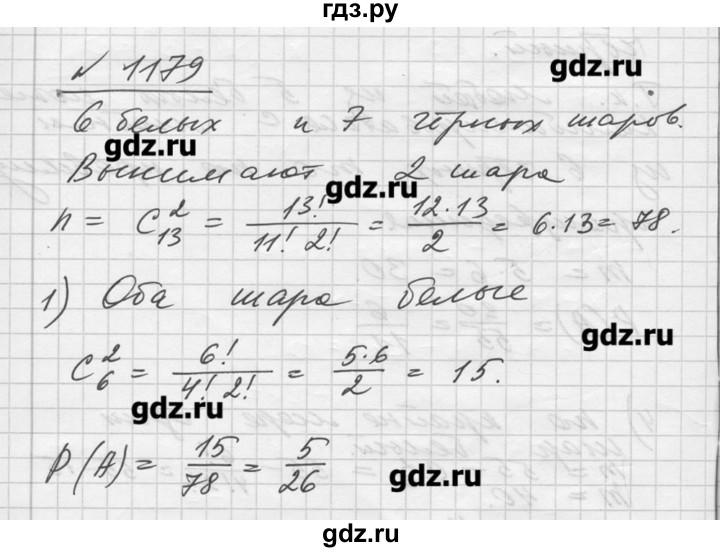 гдз.ру
№ 1179
gdz.ru
6 белых и 7 чёрных шаров.
gdz.ru
Вынимают 2 шара
gdz.ru
n = C₁₃² = 13!/(11! 2!) = (12·13)/2 = 6·13 = 78.
1) Оба шара белые
gdz.ru
C₆² = 6!/(4! 2!) = (5·6)/2 = 15.
gdz.ru
P(A) = 15/78 = 5/26
gdz.ru
gdz.ru